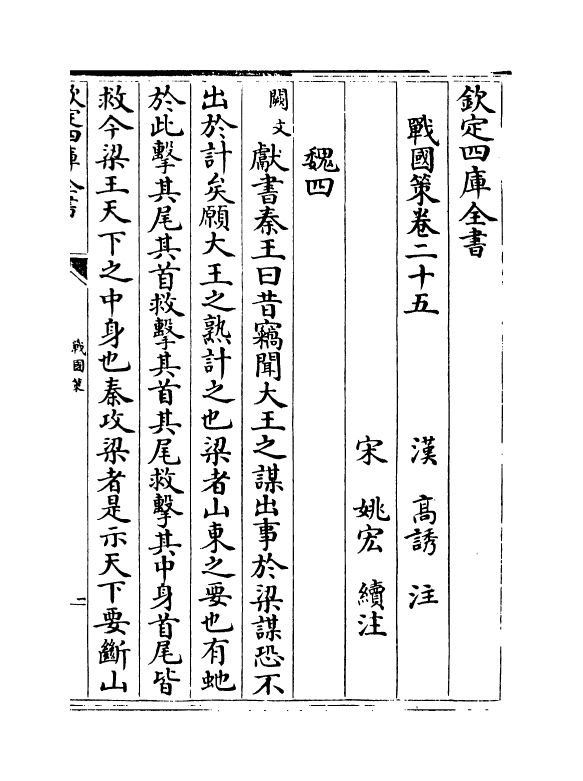 欽定四庫全書
戰國策卷二十五
漢 高誘 注
宋 姚宏 續注
魏四
闕文獻書秦王曰昔竊聞大王之謀出事於梁謀恐不
出於計矣願大王之熟計之也梁者山東之要也有虵
於此擊其尾其首救擊其首其尾救擊其中身首尾皆
救今梁王天下之中身也秦攻梁者是示天下要斷山
欽定四庫全書
戰國策
二